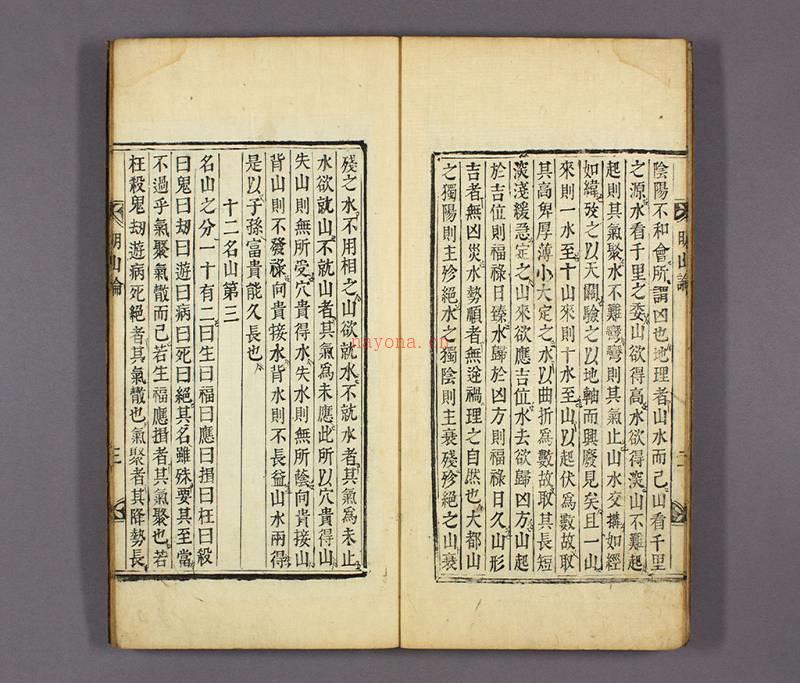 陰陽不和會所謂凶也地理者山水而已山看千里
之源水看千里之委山欲得高水欲得深山不難起
起則其氣聚水不難彎彎則其氣止山水交搆如經
如緯攷之以天關驗之以地軸而興廢見矣且一山
來則一水至十山來則十水至山以起伏爲數故取
其高卑厚薄小大定之水以曲折爲數故取其長短
深淺緩急定之山來欲應吉位水去欲歸凶方山起
於吉位則福祿日臻水歸於凶方則福祿日久山形
吉者無凶災水勢順者無逆禍理之自然也大都山
之獨陽則主殄絕水之獨陰則主衰殘殄絕之山衰
明山論
二
殘之水不用相之山欲就水不就水者其氣爲未止
水欲就山不就山者其氣爲未應此所以穴貴得山
失山則無所受穴貴得水失水則無所蔭向貴接山
背山則不發祿向貴接水背水則不長益山水兩得
是以子孫富貴能久長也
十二名山第三
名山之分一十有二曰生曰福曰應曰揖曰枉曰殺
曰鬼曰刼曰遊曰病曰死曰絕其名雖殊要其至當
不過乎氣聚氣散而已若生福應揖者其氣聚也若
枉殺鬼刼遊病死絕者其氣散也氣聚者其降勢長
明山論
三
nayona.cn